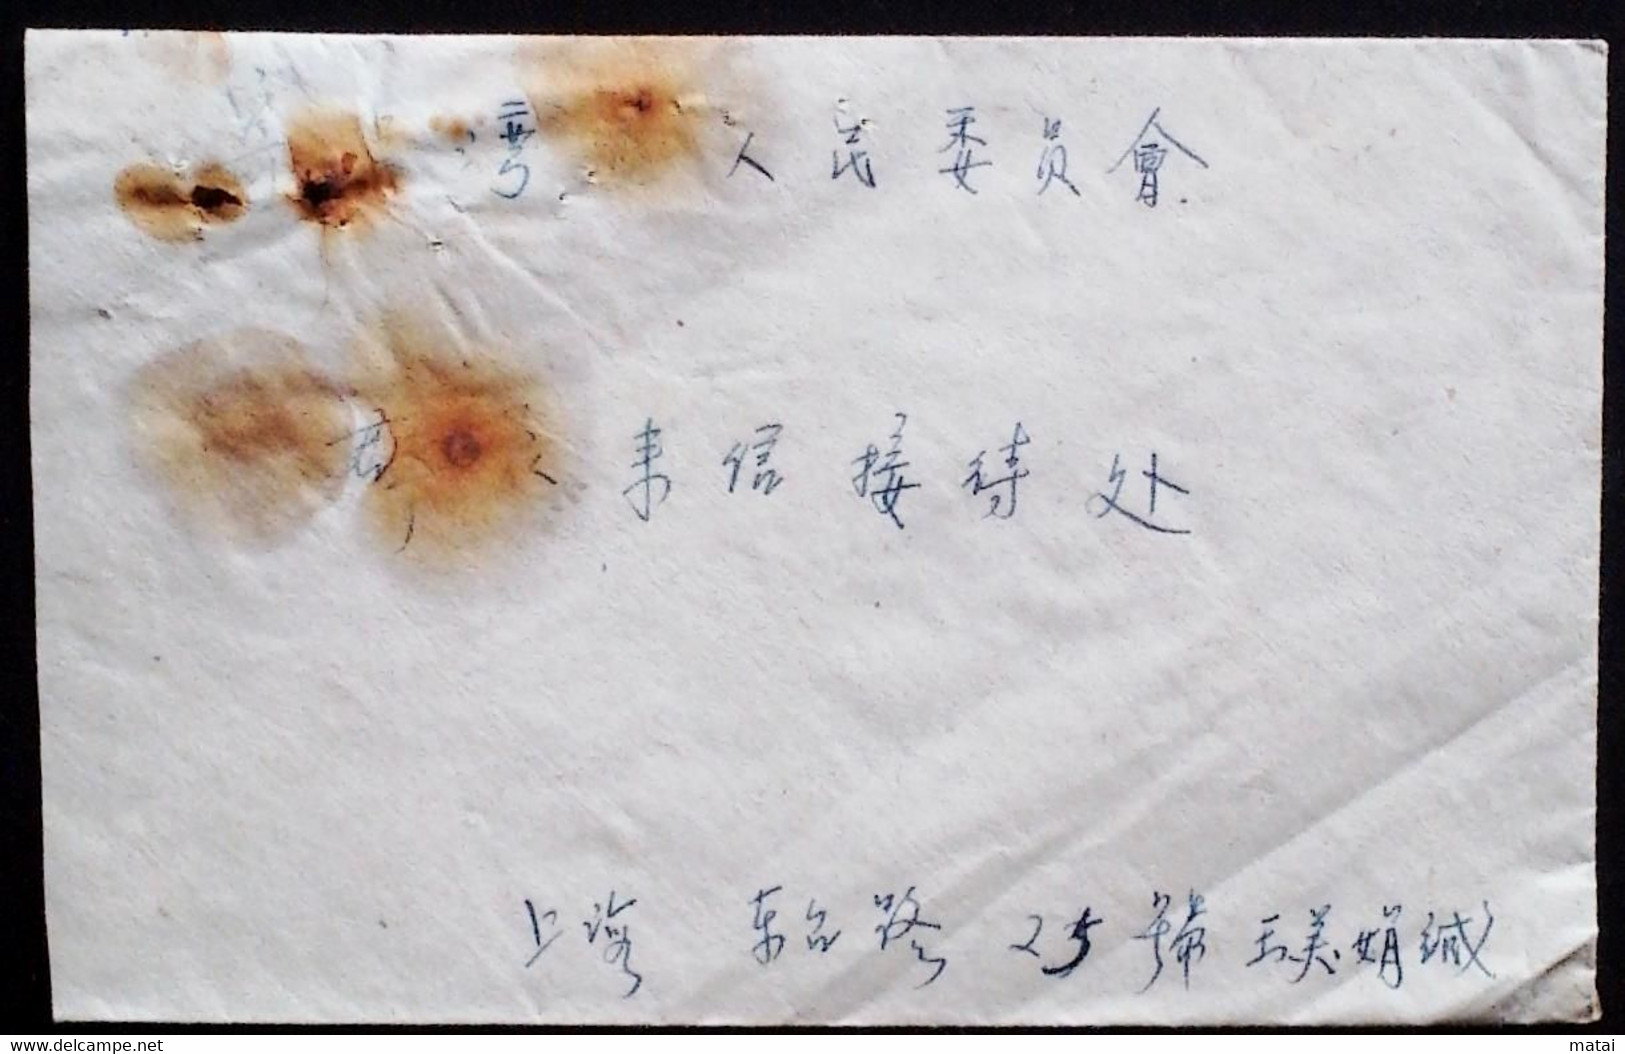 人民委員會
来信接待处
上海 东台路 25 號 王美娟缄
www.delcampe.net
matai